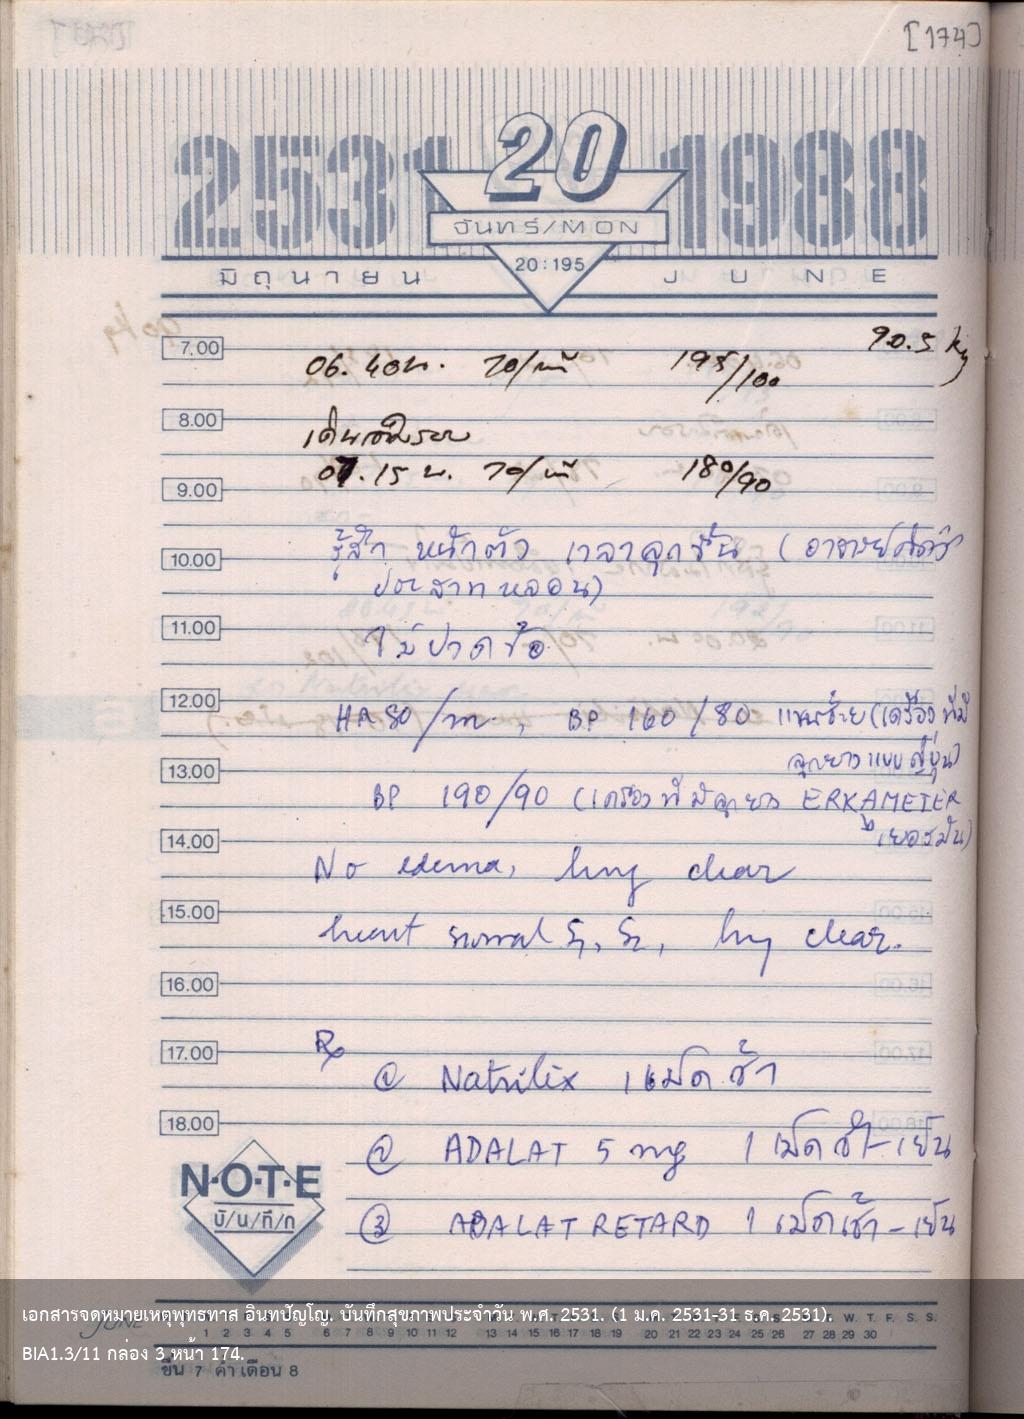 [174]
2531 20 1988
จันทร์/MON
20:195
มิถุนายน JUNE
90.5 kg
7.00
06.40น. 70/นาที 195/100
8.00
เดินสมิระยะ
07.15 น. 70/นาที 180/90
9.00
รู้สึก หนักตัว เวลาลุกขึ้น (อาจารย์
10.00
ประสาทหลอน)
11.00
ไม่ปวดข้อ
12.00
HR 80/m, BP 160/80 แขนซ้าย (เครื่องที่มี
ลูกยาง แบบญี่ปุ่น)
13.00
BP 190/90 (เครื่องที่มีลูกยาง ERKAMETER
เยอรมัน)
14.00
No edema, lung clear
15.00
heart normal S1, S2, lung clear.
16.00
17.00
Rx
Natrilix 1 เม็ด เช้า
18.00
ADALAT 5 mg 1 เม็ด เช้า-เย็น
③ ADALAT RETARD 1 เม็ด เช้า-เย็น
N·O·T·E
บั/น/ทึ/ก
เอกสารจดหมายเหตุพุทธทาส อินทปัญโญ. บันทึกสุขภาพประจำวัน พ.ศ. 2531. (1 ม.ค. 2531-31 ธ.ค. 2531).
JUNE 1 2 3 4 5 6 7 8 9 10 11 12 13 14 15 16 17 18 19 20 21 22 23 24 25 26 27 28 29 30
BIA1.3/11 กล่อง 3 หน้า 174.
ขึ้น 7 ค่ำ เดือน 8